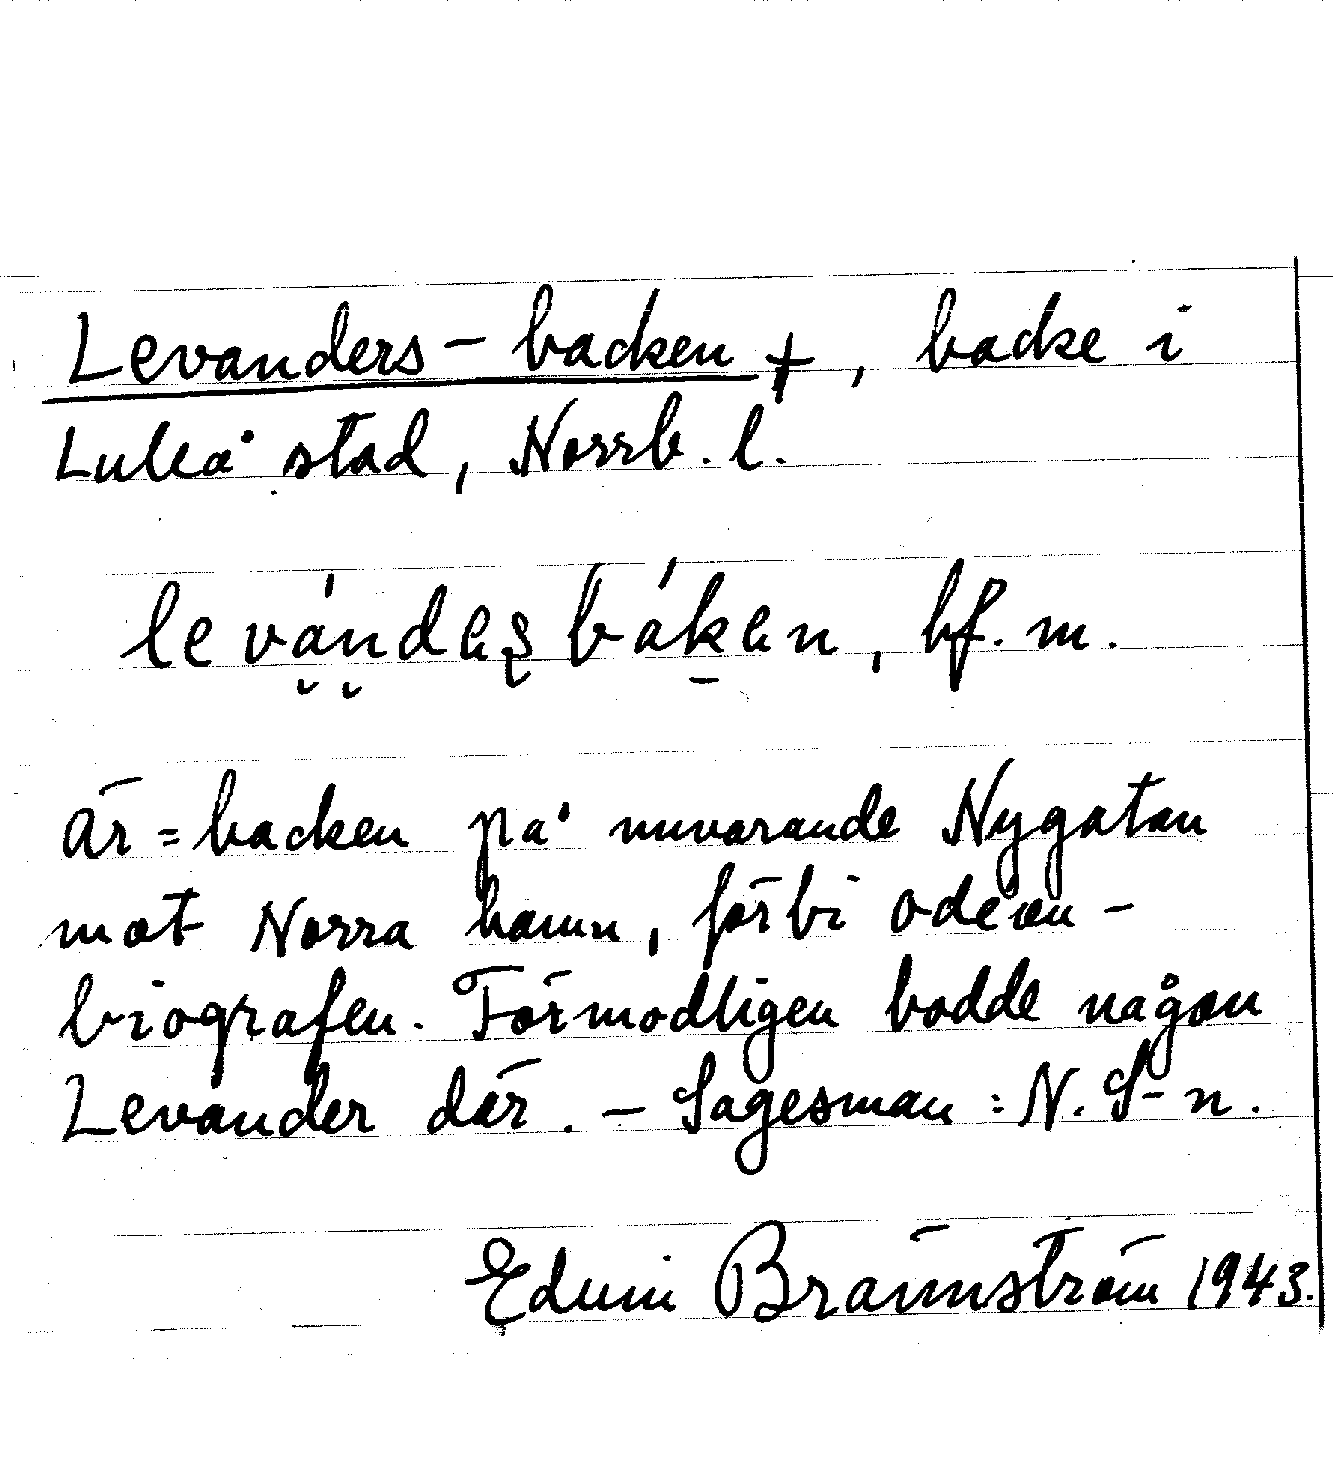 Levanders-backen †, backe i
Luleå stad, Norrb. l.
levándes̨báken, bf. m.
är = backen på nuvarande Nygatan
mot Norra hamn, förbi odeon-
biografen. Förmodligen bodde någon
Levander där. – Sagesman: N. S-n.
Edvin Brännström 1943.